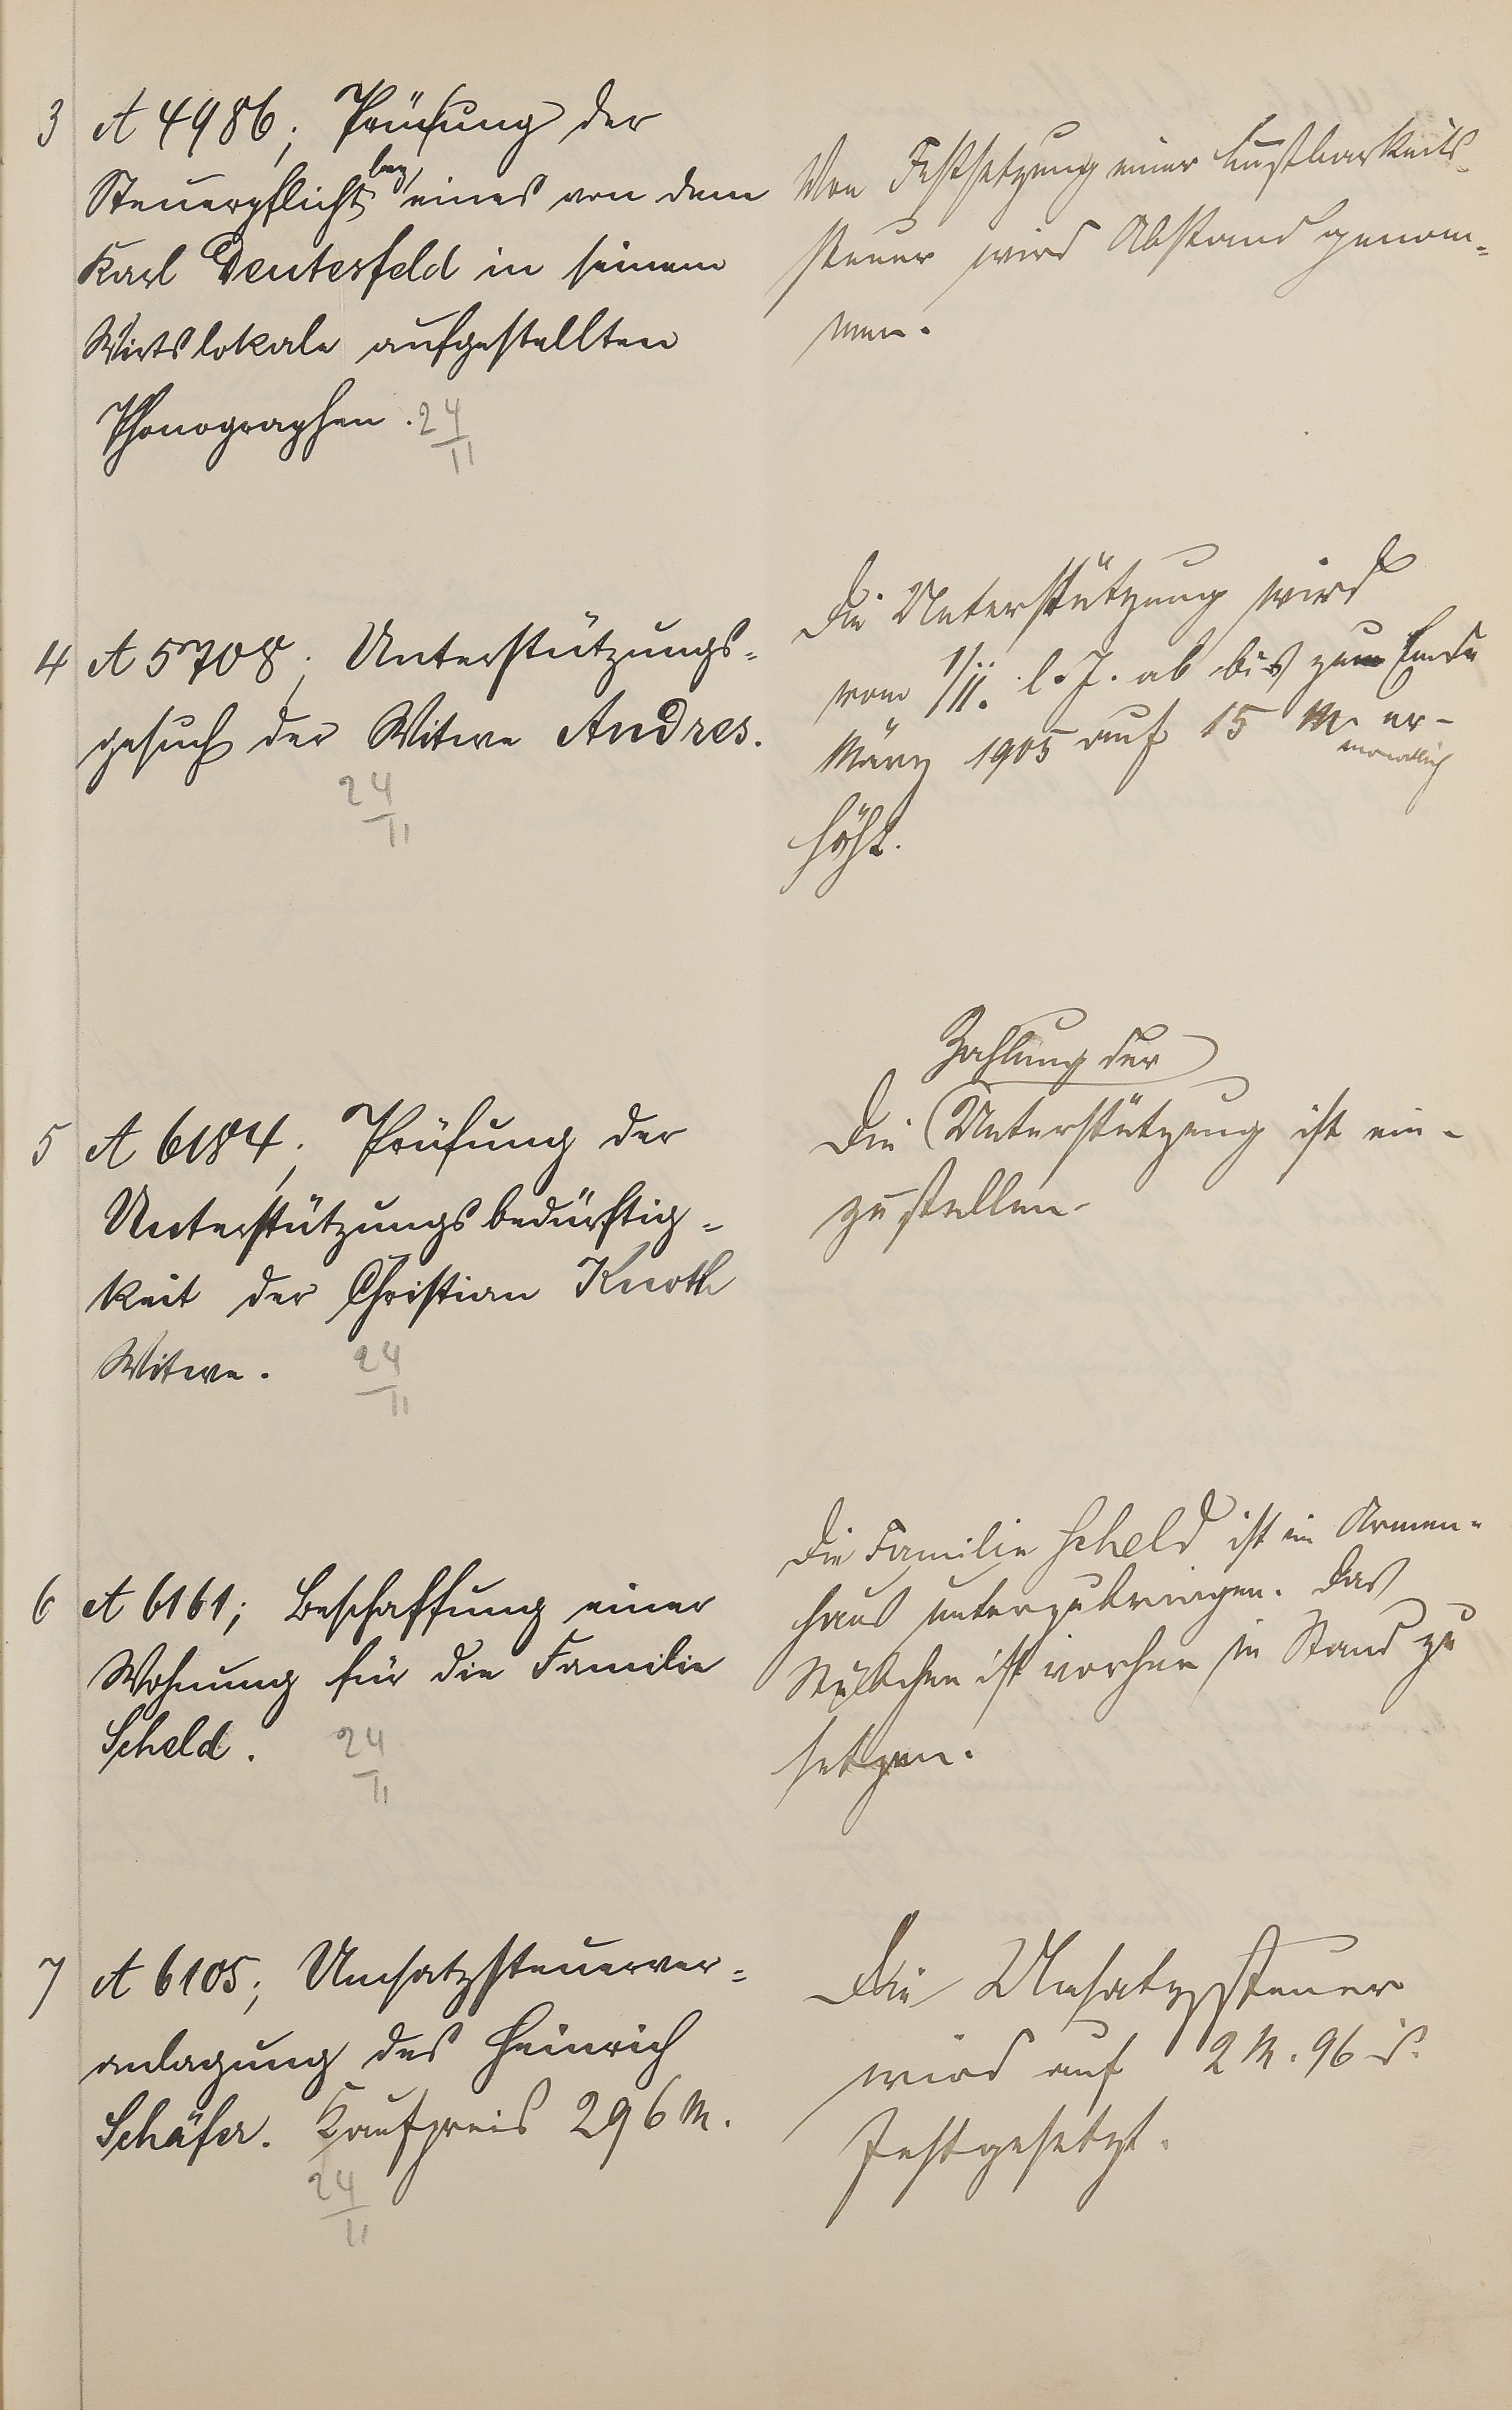 3 A 4986; Prüfung der
Steuerpflicht bez. eines von dem
Karl Deutesfeld in seinem
Wirtslokale aufgestellten
Phonographen. 24/II
Von Festsetzung einer Lustbarkeits-
steuer wird Abstand genom-
men.
4 A 5708; Unterstützungs-
gesuch der Witwe Andres.
24/II
Die Unterstützung wird
vom 1/II. l. J. ab bis zum Ende
März 1905 auf 15 M. er-
monatlich
höht.
5 A 6184; Prüfung der
Unterstützungsbedürftig-
keit der Christian Knoth
Witwe. 24/II
Zahlung der
Die Unterstützung ist ein-
zustellen.
6 A 6161; Beschaffung einer
Wohnung für die Familie
Scheld. 24/II
Die Familie Scheld ist im Armen-
haus unterzubringen. Das
Stübchen ist vorher in Stand zu
setzen.
7 A 6105; Umsatzsteuerver-
anlagung des Heinrich
Schäfer. Kaufpreis 296 M.
24/II
Die Umsatzsteuer
wird auf 2 M. 96 d.
festgesetzt.